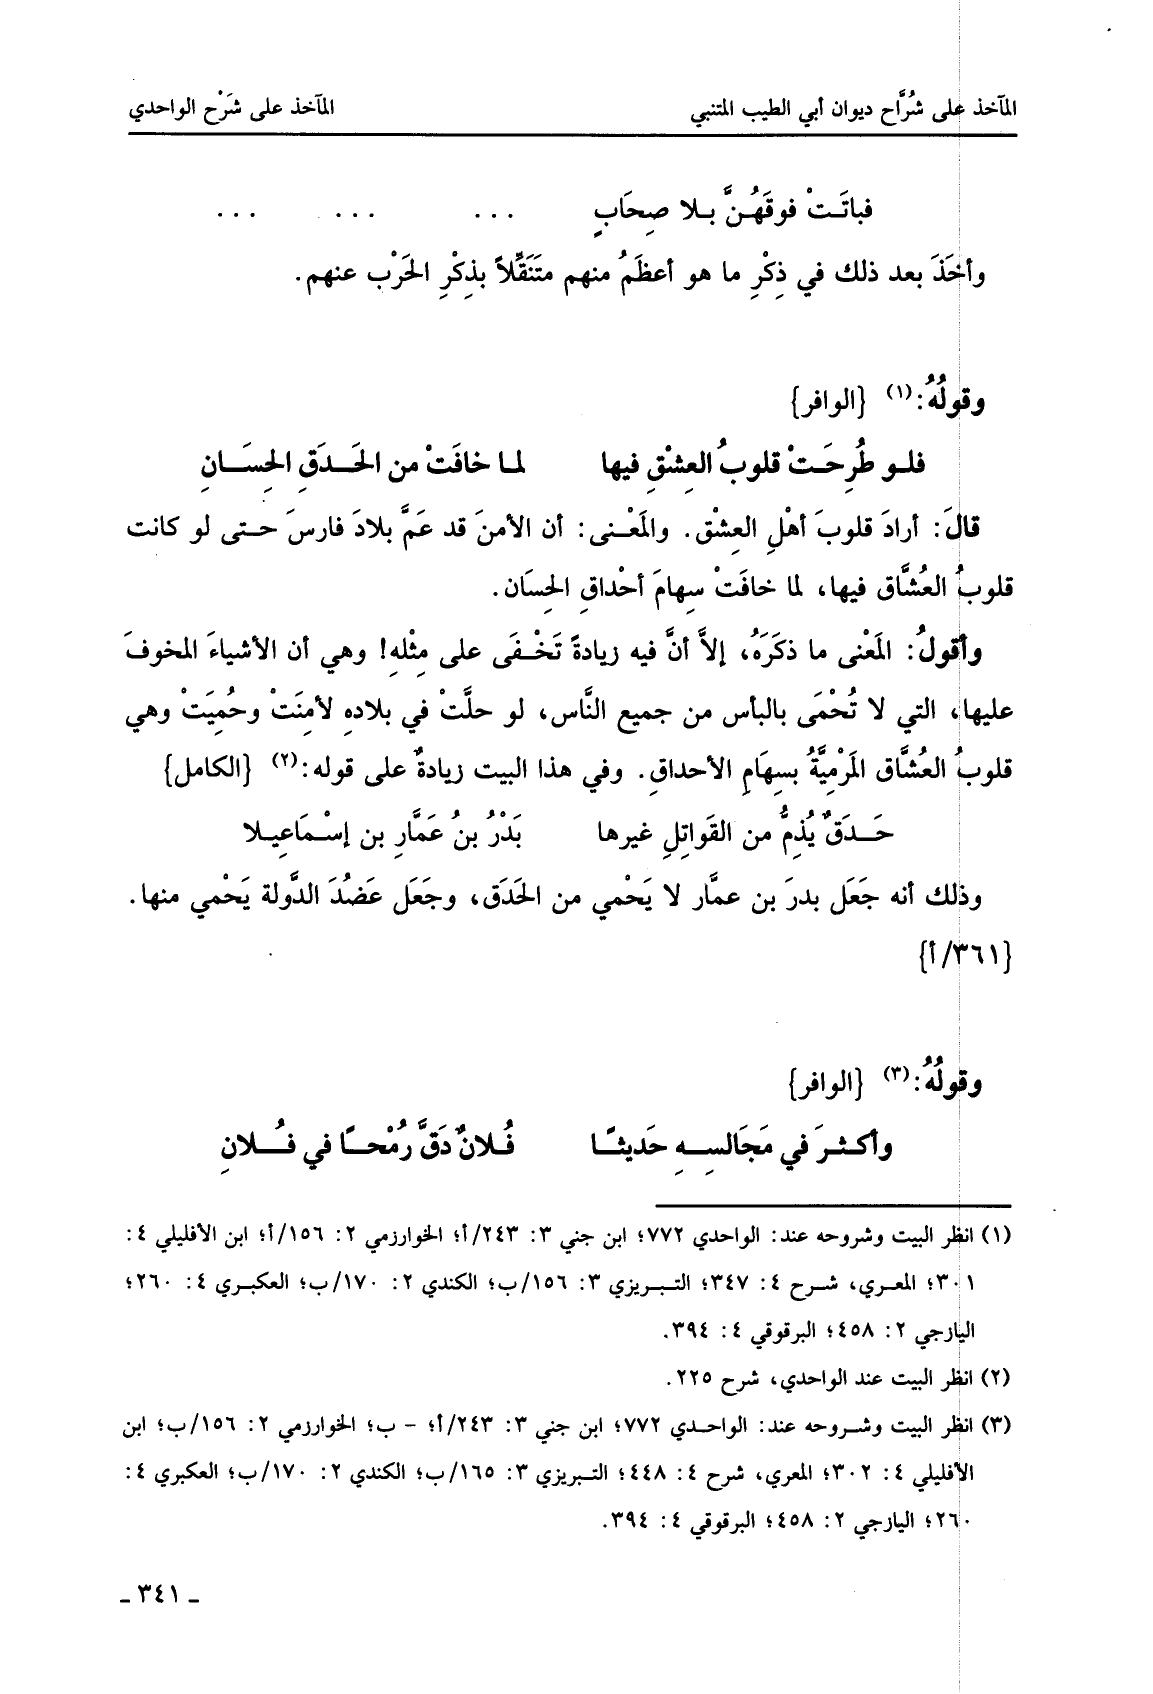 المآخذ على شُرَّاح ديوان أبي الطيب المتنبي المآخذ على شَرْح الواحدي
فباتَـتْ فوقَهُـنَّ بـلا صِحَابٍ ... ... ...
وأخَذَ بعد ذلك في ذِكْرِ ما هو أعظَمُ منهم متَنَقِّلاً بذِكْرِ الحَرْب عنهم.
وقولُهُ:(١) {الوافر}
فلـو طُرِحَـتْ قلوبُ العِشْقِ فيها لمـا خافَتْ من الحَـدَقِ الحِسَـانِ
قالَ: أرادَ قلوبَ أهْلِ العِشْق. والمَعْـنى: أن الأمنَ قد عَمَّ بلادَ فارسَ حـتى لو كانت
قلوبُ العُشَّاق فيها، لما خافَتْ سِهامَ أحْداقِ الحِسَان.
وأقولُ: المَعْنى ما ذكَرَهُ، إلاَّ أنَّ فيه زيادةً تَخْـفَى على مِثْلهِ! وهي أن الأشياءَ المخوفَ
عليها، التي لا تُحْمَى بالبأس من جميع النَّاس، لو حلَّتْ في بلادهِ لأمِنَتْ وحُمِيَتْ وهي
قلوبُ العُشَّاق المَرْمِيَّةُ بسِهَامِ الأحداقِ. وفي هذا البيت زيادةٌ على قوله:(٢) {الكامل}
حَـدَقٌ يُذِمُّ من القَواتِلِ غيرها بَدْرُ بنُ عَمَّارِ بن إسْـمَاعِيـلا
وذلك أنه جَعَل بدرَ بن عمَّار لا يَحْمي من الحَدَق، وجَعَل عَضُدَ الدَّولة يَحْمي منها.
{٣٦١/أ}
وقولُهُ:(٣) {الوافر}
وأكـثـرَ في مَجَالسِـهِ حَديثـًا فُلانٌ دَقَّ رُمْحـًا في فُـلانِ
(١) انظر البيت وشروحه عند: الواحدي ٧٧٢؛ ابن جني ٣: ٢٤٣/أ؛ الخوارزمي ٢: ١٥٦/أ؛ ابن الأفليلي ٤:
٣٠١؛ المعـري، شـرح ٤: ٣٤٧؛ التـبـريزي ٣: ١٥٦/ب؛ الكندي ٢: ١٧٠/ب؛ العكبـري ٤: ٢٦٠؛
اليازجي ٢: ٤٥٨؛ البرقوقي ٤: ٣٩٤.
(٢) انظر البيت عند الواحدي، شرح ٢٢٥.
(٣) انظر البيت وشـروحه عند: الواحـدي ٧٧٢؛ ابن جني ٣: ٢٤٣/أ؛ - ب؛ الخوارزمي ٢: ١٥٦/ب؛ ابن
الأفليلي ٤: ٣٠٢؛ المعري، شرح ٤: ٤٤٨؛ التـبريزي ٣: ١٦٥/ب؛ الكندي ٢: ١٧٠/ب؛ العكبري ٤:
٢٦٠؛ اليازجي ٢: ٤٥٨؛ البرقوقي ٤: ٣٩٤.
ـ ٣٤١ ـ